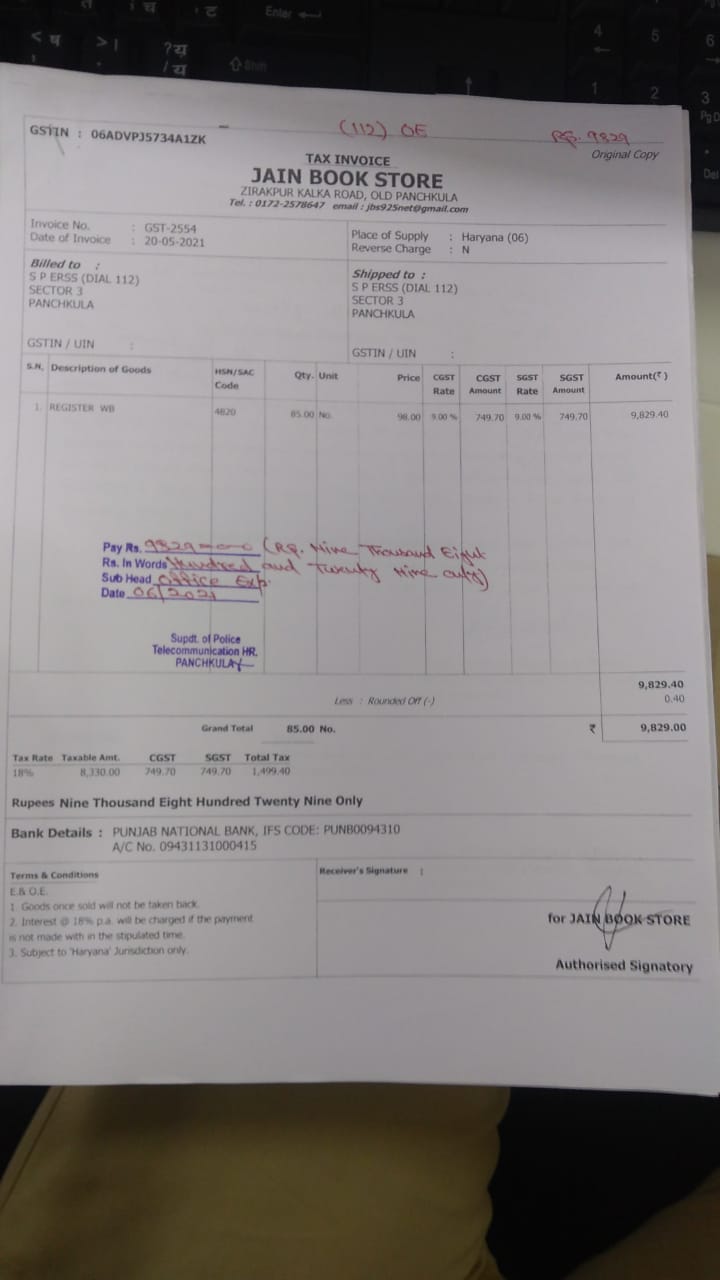 (112) OE
Rs. 9829
GSTIN : 06ADVPJ5734A1ZK
Original Copy
TAX INVOICE
JAIN BOOK STORE
ZIRAKPUR KALKA ROAD, OLD PANCHKULA
Tel. : 0172-2578647 email : jbs925net@gmail.com
Invoice No. : GST-2554
Date of Invoice : 20-05-2021
Place of Supply : Haryana (06)
Reverse Charge : N
Billed to :
S P ERSS (DIAL 112)
SECTOR 3
PANCHKULA
GSTIN / UIN :
Shipped to :
S P ERSS (DIAL 112)
SECTOR 3
PANCHKULA
GSTIN / UIN :
S.N. Description of Goods HSN/SAC Code Qty. Unit Price CGST Rate CGST Amount SGST Rate SGST Amount Amount(₹)
1. REGISTER WB 4820 85.00 No. 98.00 9.00 % 749.70 9.00 % 749.70 9,829.40
Pay Rs. 9829=00 (Rs. Nine Thousand Eight
Rs. In Words Hundred and Twenty Nine only)
Sub Head Office Exp.
Date 06/2021
Supdt. of Police
Telecommunication HR.
PANCHKULA
9,829.40
Less : Rounded Off (-) 0.40
Grand Total 85.00 No. ₹ 9,829.00
Tax Rate Taxable Amt. CGST SGST Total Tax
18% 8,330.00 749.70 749.70 1,499.40
Rupees Nine Thousand Eight Hundred Twenty Nine Only
Bank Details : PUNJAB NATIONAL BANK, IFS CODE: PUNB0094310
A/C No. 09431131000415
Terms & Conditions
E.& O.E.
1. Goods once sold will not be taken back.
2. Interest @ 18% p.a. will be charged if the payment
is not made with in the stipulated time.
3. Subject to 'Haryana' Jurisdiction only.
Receiver's Signature :
for JAIN BOOK STORE
Authorised Signatory